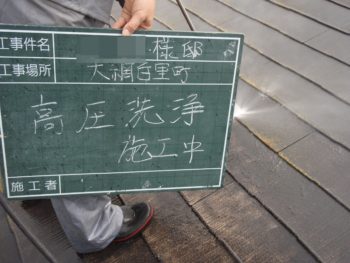 工事件名 様邸
工事場所 大網白里町
高圧洗浄
施工中
施工者